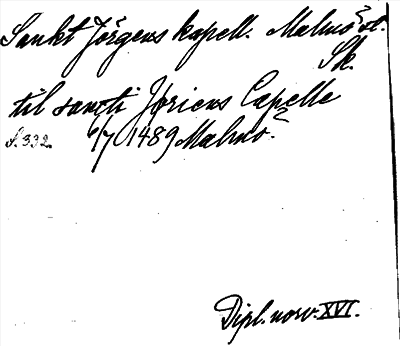 Sankt Jörgens kapell. Malmö st.
Sk.
til sancti Jøriens Capelle
S. 332. 6/7 1489 Malmö.
Dipl. norv. XVI.